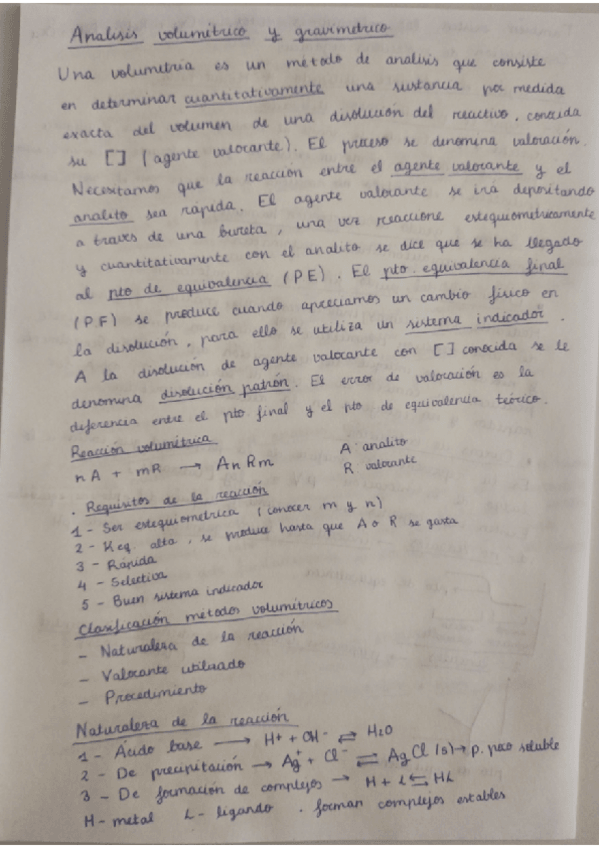 Analisis volumétrico y gravimetrico
Una volumetria es un método de analisis que consiste
en determinar cuantitativamente una sustancia por medida
exacta del volumen de una disolución del reactivo, conocida
su [] (agente valorante). El proceso se denomina valoración.
Necesitamos que la reacción entre el agente valorante y el
analito sea rápida. El agente valorante se irá depositando
a traves de una bureta, una vez reaccione estequiometricamente
y cuantitativamente con el analito se dice que se ha llegado
al pto de equivalencia (PE). El pto. equivalencia final
(PF) se produce cuando apreciamos un cambio fisico en
la disolución, para ello se utiliza un sistema indicador.
A la disolución de agente valorante con [] conocida se le
denomina disolución patrón. El error de valoración es la
diferencia entre el pto final y el pto de equivalencia teórico.
Reacción volumétrica
A analito
nA + mR → AnRm
R valorante
. Requisitos de la reacción
1 - Ser estequiometrica (conocer m y n)
2 - Keq. alta, se produce hasta que A o R se gasta
3 - Rápida
4 - Selectiva
5 - Buen sistema indicador
Clasificación métodos volumétricos
- Naturaleza de la reacción
- Valorante utilizado
- Procedimiento
Naturaleza de la reacción
1 - Ácido base → H+ + OH- ⇌ H2O
2 - De precipitación → Ag+ + Cl- ⇌ AgCl (s) → p. poco soluble
3 - De formación de complejos → M + L ⇆ ML
M - metal L - ligando . forman complejos estables